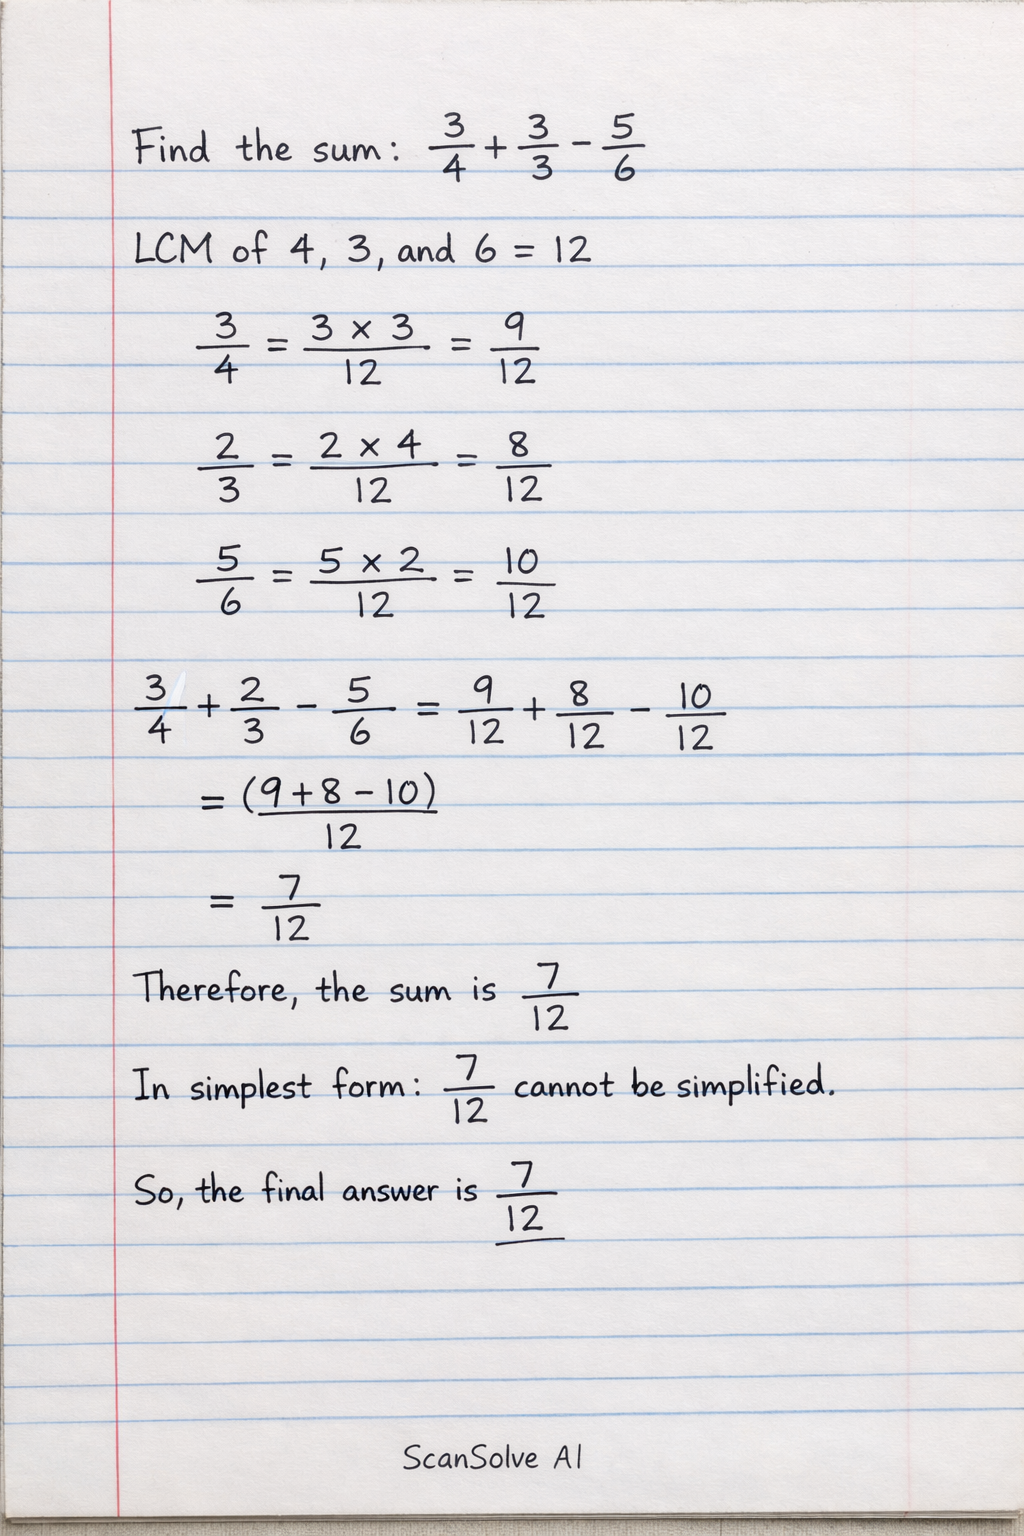 Find the sum: 3/4 + 3/3 − 5/6
LCM of 4, 3, and 6 = 12
3/4 = 3 × 3/12 = 9/12
2/3 = 2 × 4/12 = 8/12
5/6 = 5 × 2/12 = 10/12
3/4 + 2/3 − 5/6 = 9/12 + 8/12 − 10/12
= (9+8−10)/12
= 7/12
Therefore, the sum is 7/12
In simplest form: 7/12 cannot be simplified.
So, the final answer is 7/12
ScanSolve AI